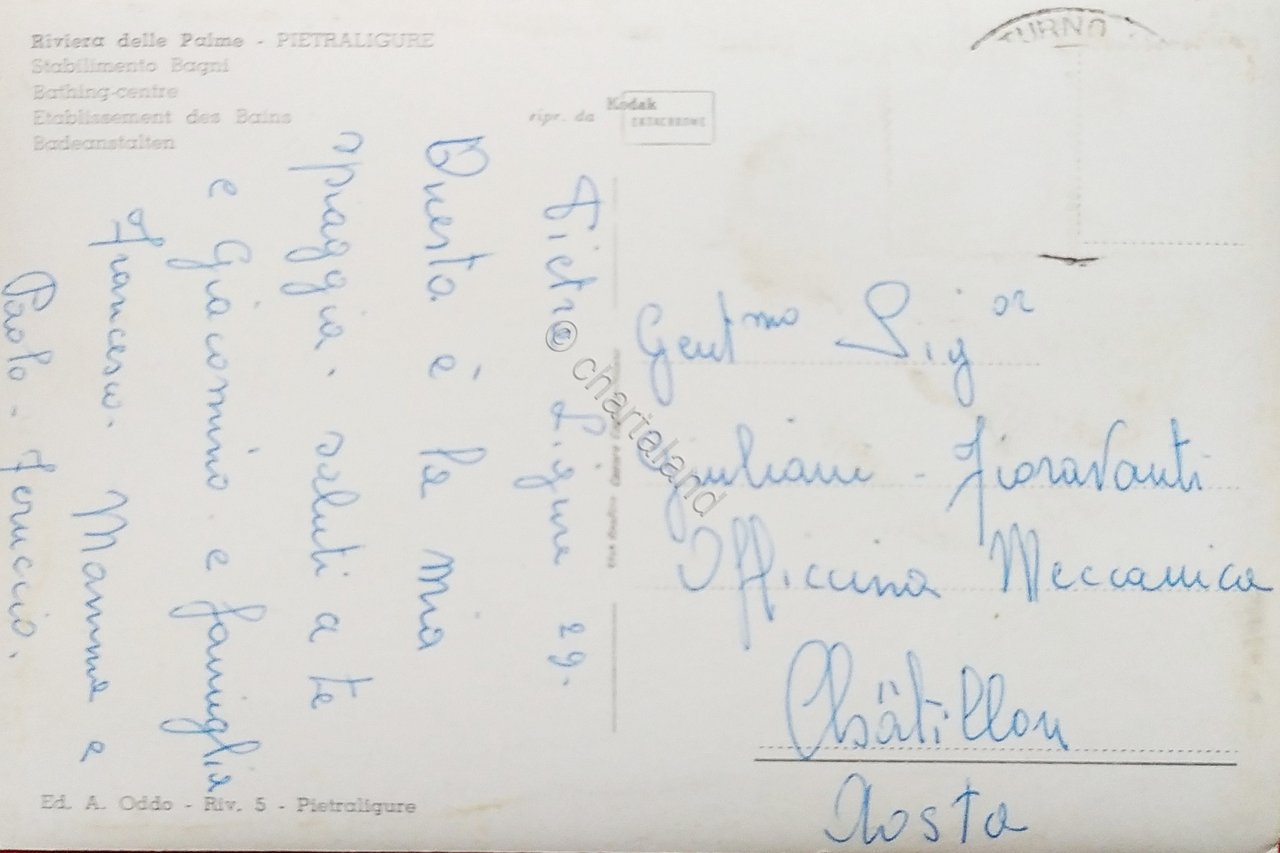 Riviera delle Palme - PIETRALIGURE
Stabilimento Bagni
Bathing-centre
Etablissement des Bains
Badeanstalten
ripr. da Kodak
EKTACHROME
TURNO
Pietra Ligure 29.
Questa è la mia
spiaggia. saluti a te
e Giacomino e famiglia
Francesco. Mamma e
Paolo - Ferruccio.
Gentmo Sigor
Giuliani - Fioravanti
Officina Meccanica
Châtillon
Aosta
© chartaland
Ed. A. Oddo - Riv. 5 - Pietraligure